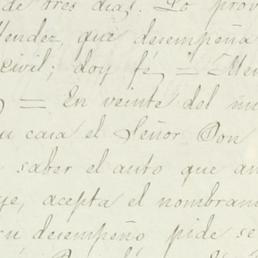 de tres dias. Lo prov
Mendez, que desempeña
civil; doy fé = Men
= En veinte del m
su casa el Señor Don
saber el auto que an
ye, acepta el nombram
su desempeño, pide se